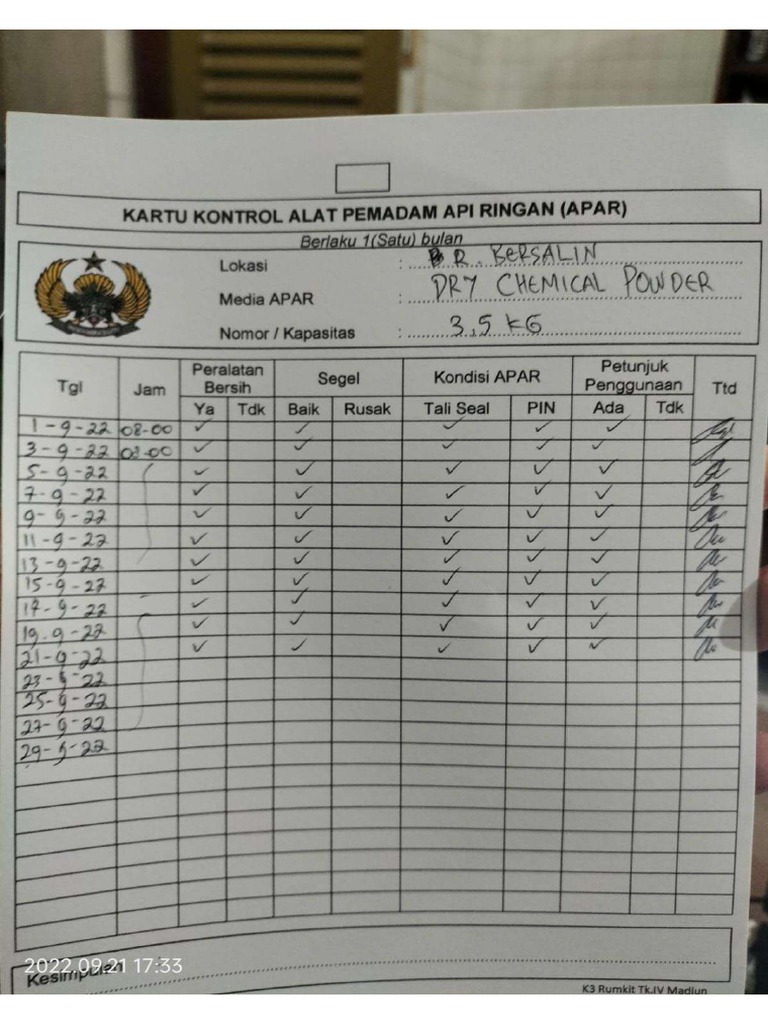 KARTU KONTROL ALAT PEMADAM API RINGAN (APAR)
Berlaku 1(Satu) bulan
Lokasi : R. BERSALIN
Media APAR : DRY CHEMICAL POWDER
Nomor / Kapasitas : 3,5 KG
Tgl Jam Peralatan Bersih Segel Kondisi APAR Petunjuk Penggunaan Ttd
Ya Tdk Baik Rusak Tali Seal PIN Ada Tdk
1-9-22 08-00 ✓ ✓ ✓ ✓ ✓
3-9-22 08-00 ✓ ✓ ✓ ✓ ✓
5-9-22 ✓ ✓ ✓ ✓ ✓
7-9-22 ✓ ✓ ✓ ✓ ✓
9-9-22 ✓ ✓ ✓ ✓ ✓
11-9-22 ✓ ✓ ✓ ✓ ✓
13-9-22 ✓ ✓ ✓ ✓ ✓
15-9-22 ✓ ✓ ✓ ✓ ✓
17-9-22 ✓ ✓ ✓ ✓ ✓
19-9-22 ✓ ✓ ✓ ✓ ✓
21-9-22 ✓ ✓ ✓ ✓ ✓
23-9-22
25-9-22
27-9-22
29-9-22
2022.09.21 17:33
Kesimpulan
K3 Rumkit Tk.IV Madiun